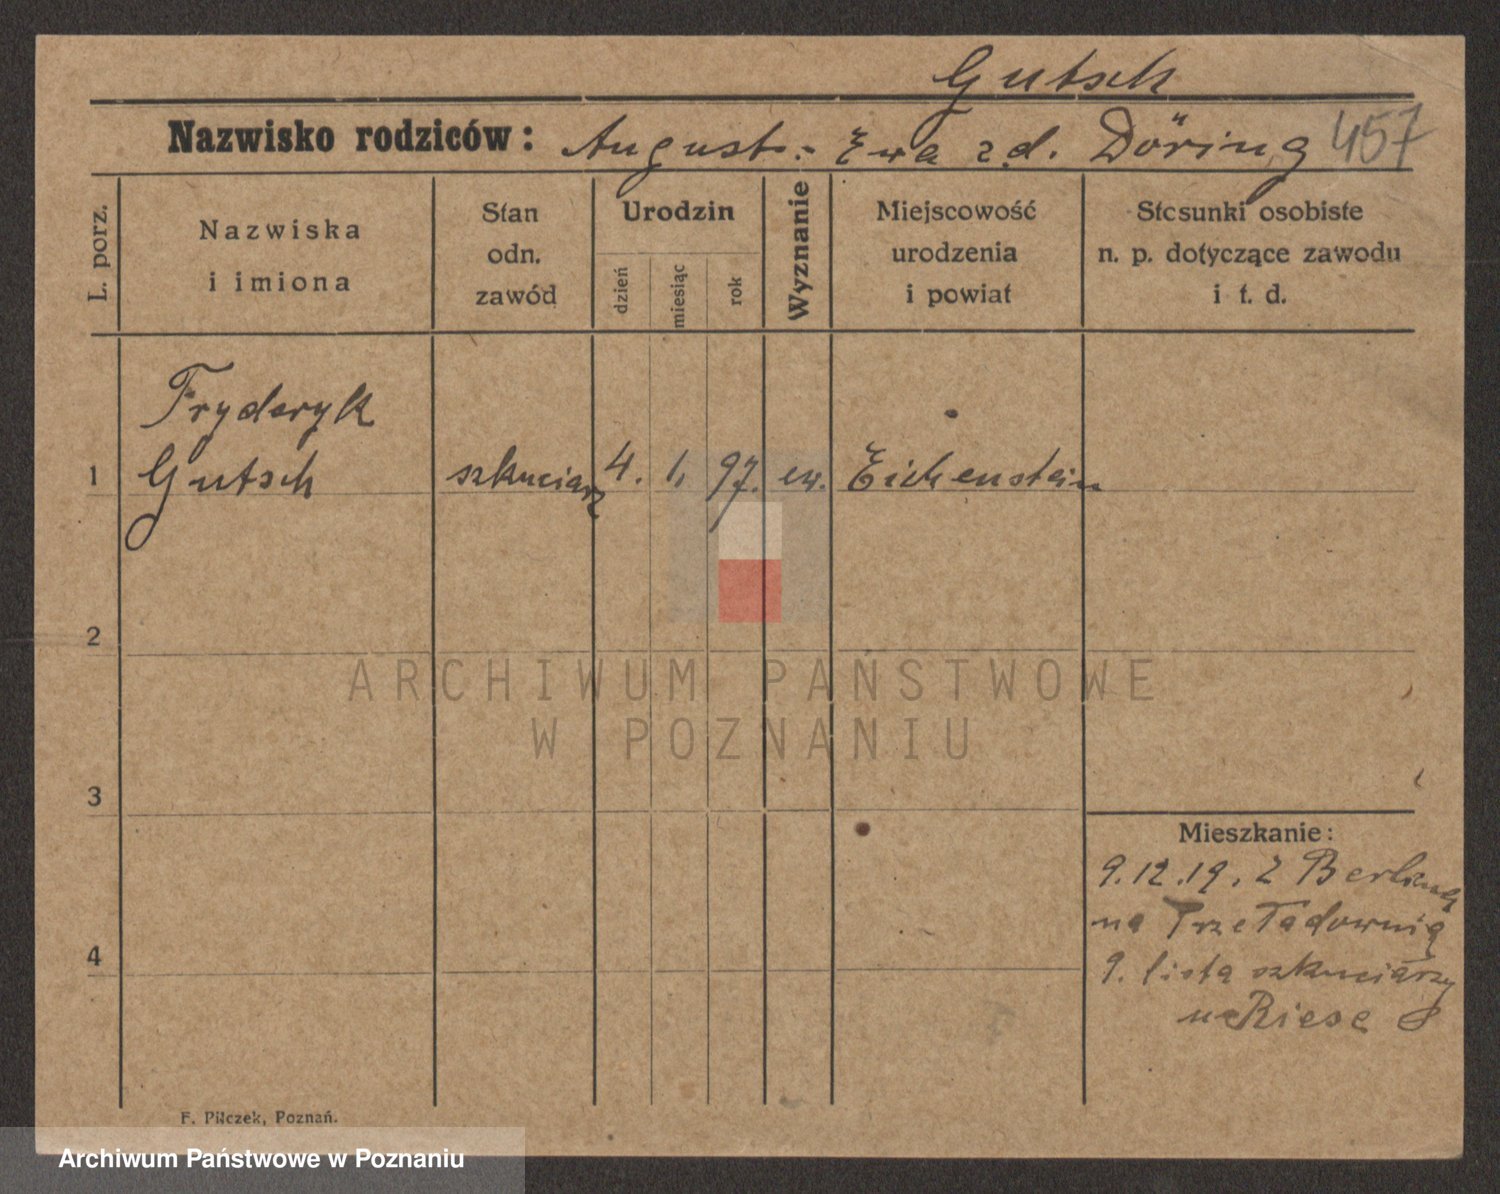 Gutsch
Nazwisko rodziców: August - Ewa z d. Döring 457
L. porz.
Nazwiska
i imiona
Stan
odn.
zawód
Urodzin
dzień
miesiąc
rok
Wyznanie
Miejscowość
urodzenia
i powiat
Stosunki osobiste
n. p. dotyczące zawodu
i t. d.
Fryderyk
1 Gutsch szkuciarz 4. 1. 97. ew. Eichenstein
2
3
4
Mieszkanie:
9.12.19. z Berlina
na
9. listą szkuciarzy
Riese
F. Pilczek, Poznań.
ARCHIWUM PAŃSTWOWE
W POZNANIU
Archiwum Państwowe w Poznaniu